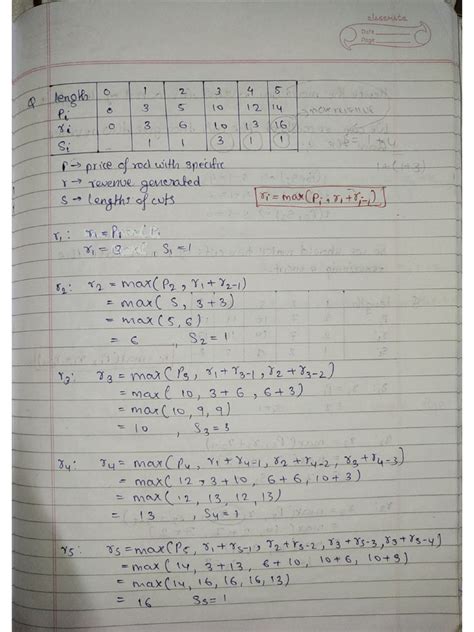 classmate
Date
Page
Q. length 0 1 2 3 4 5
Pi 0 3 5 10 12 14
ri 0 3 6 10 13 16
Si - 1 1 3 1 1
P → price of rod with specific
r → revenue generated
S → lengths of cuts
ri = max(Pi, r1 + ri-1)
r1: r1 = Pi
r1 = 3, S1 = 1
r2: r2 = max(P2, r1+r2-1)
= max(5, 3+3)
= max(5,6)
= 6, S2 = 1
r3: r3 = max(P3, r1+r3-1, r2+r3-2)
= max(10, 3+6, 6+3)
= max(10, 9, 9)
= 10, S3=3
r4: r4 = max(P4, r1+r4-1, r2+r4-2, r3+r4-3)
= max(12, 3+10, 6+6, 10+3)
= max(12, 13, 12, 13)
= 13, S4=1
r5: r5 = max(P5, r1+r5-1, r2+r5-2, r3+r5-3, r4+r5-4)
= max(14, 3+13, 6+10, 10+6, 10+3)
= max(14, 16, 16, 16, 13)
= 16 S5=1